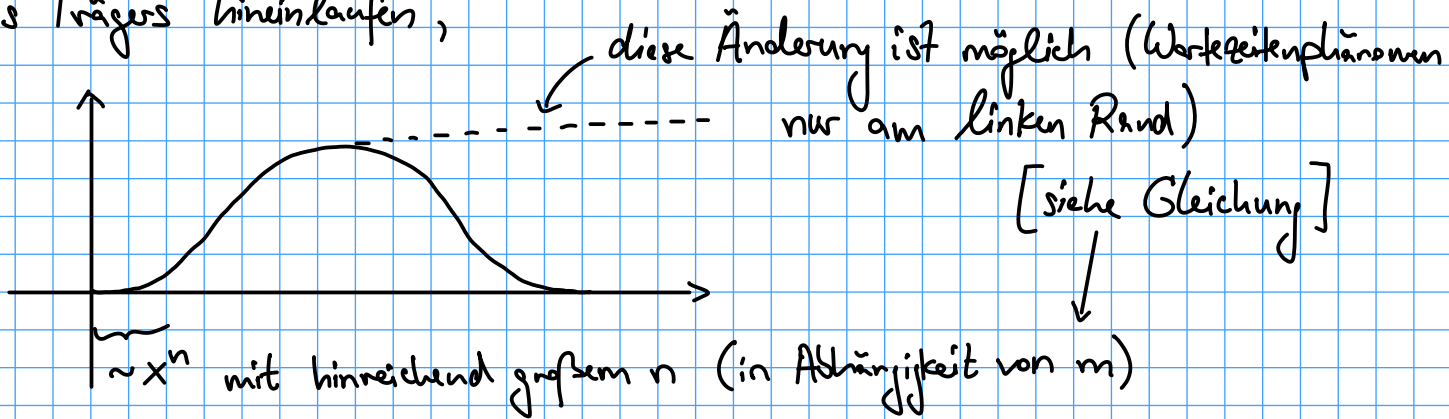 s Trägers hineinlaufen,
diese Änderung ist möglich (Wartezeitenphänomen
nur am linken Rand)
[siehe Gleichung]
~ xⁿ mit hinreichend großem n (in Abhängigkeit von m)